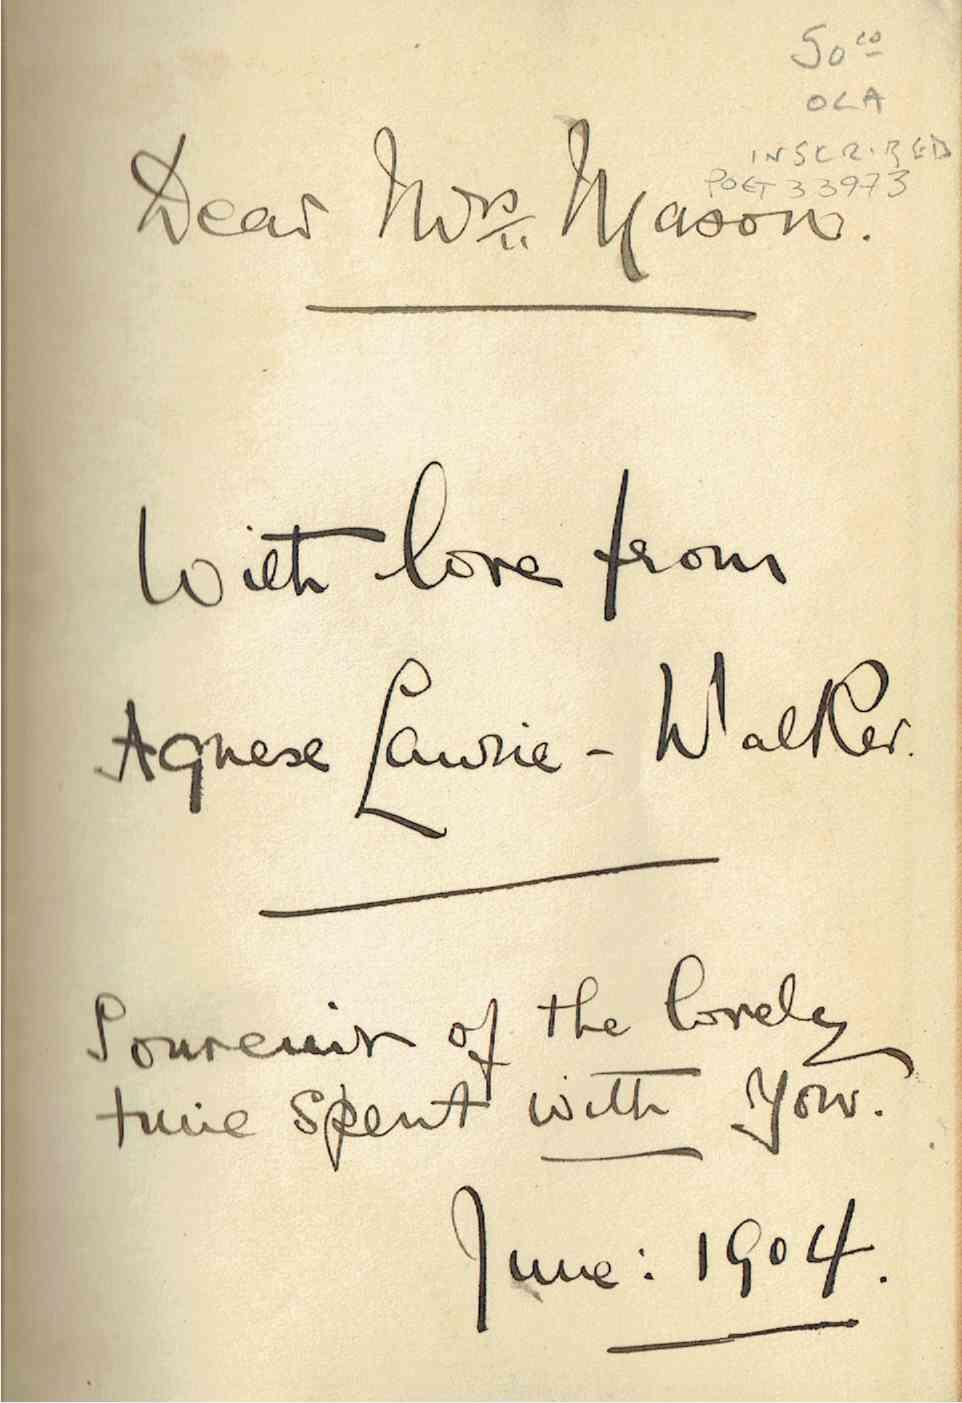 50 00
OLA
INSCRIBED
POET 33973
Dear Mrs. Mason.
With love from
Agnese Laurie - Walker.
Souvenir of the lovely
time spent with You.
June: 1904.